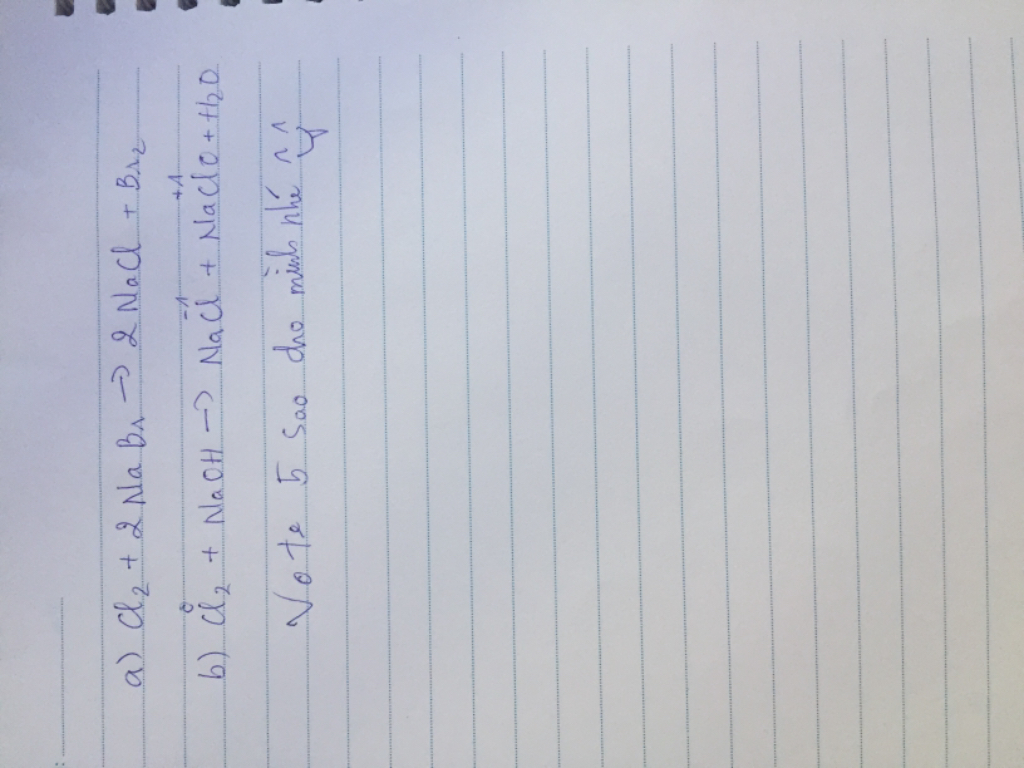 a) Cl₂ + 2NaBr → 2NaCl + Br₂
b) Cl₂⁰ + NaOH → NaCl⁻¹ + NaClO⁺¹ + H₂O
Vote 5 sao cho mình nhé ^^